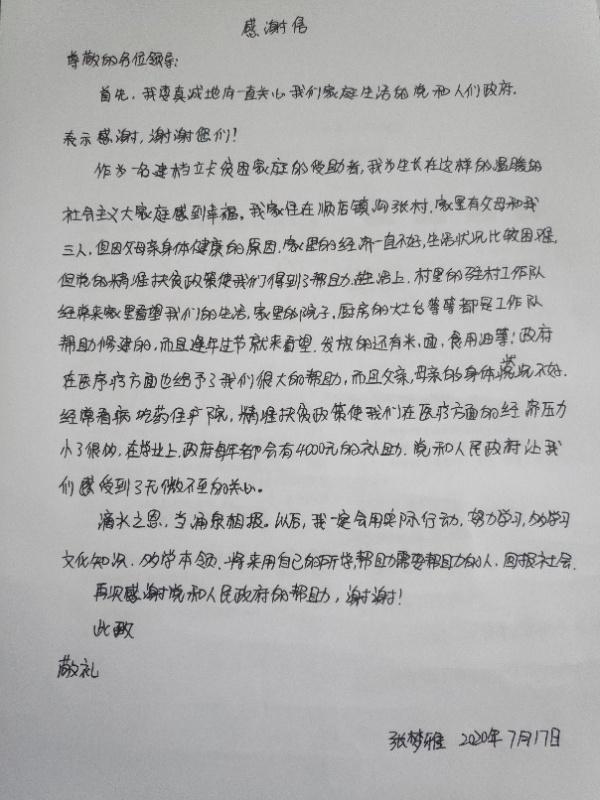 感谢信
尊敬的各位领导:
首先,我要真诚地向一直关心我们家庭生活的党和人们政府.
表示感谢,谢谢您们!
作为一名建档立卡贫困家庭的受助者,我为生长在这样的温暖的
社会主义大家庭感到幸福。我家住在顺店镇 张村.家里有父母和我
三人,但因父母亲身体健康的原因.家里的经济一直不好,生活状况比较困难.
但党的精准扶贫政策使我们得到了帮助.生活上.村里的驻村工作队
经常来家里看望我们的生活,家里的院子,厨房的灶台等等都是工作队
帮助修建的,而且逢年过节就来看望.发放的还有米,面,食用油等!政府
在医疗方面也给予了我们很大的帮助,而且父亲,母亲的身体状况不好.
经常看病吃药住产院,精准扶贫政策使我们在医疗方面的经济压力
小了很多,在学业上.政府每年都会有4000元的补助.党和人民政府让我
们感受到了无微不至的关心。
滴水之恩,当涌泉相报。以后,我一定会用实际行动,努力学习,多学习
文化知识.多学本领.将来用自己的所学,帮助需要帮助的人.回报社会.
再次感谢党和人民政府的帮助,谢谢!
此致
敬礼
张梦雅 2020年7月17日